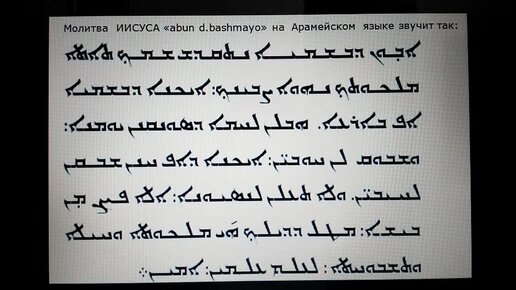 Молитва ИИСУСА «abun d.bashmayo» на Арамейском языке звучит так:
ܐܒܘܢ ܕܒܫܡܝܐ ܢܬܩܕܫ ܫܡܟ ܬܐܬܐ
ܡܠܟܘܬܟ ܢܗܘܐ ܨܒܝܢܟ: ܐܝܟܢܐ ܕܒܫܡܝܐ
ܐܦ ܒܐܪܥܐ. ܗܒ ܠܢ ܠܚܡܐ ܕܣܘܢܩܢܢ ܝܘܡܢܐ:
ܘܫܒܘܩ ܠܢ ܚܘܒܝܢ: ܐܝܟܢܐ ܕܐܦ ܚܢܢ ܫܒܩܢ
ܠܚܝܒܝܢ. ܘܠܐ ܬܥܠܢ ܠܢܣܝܘܢܐ: ܐܠܐ ܦܨܢ ܡܢ
ܒܝܫܐ: ܡܛܠ ܕܕܝܠܟ ܗܝ ܡܠܟܘܬܐ ܘܚܝܠܐ
ܘܬܫܒܘܚܬܐ: ܠܥܠܡ ܥܠܡܝܢ: ܐܡܝܢ܀